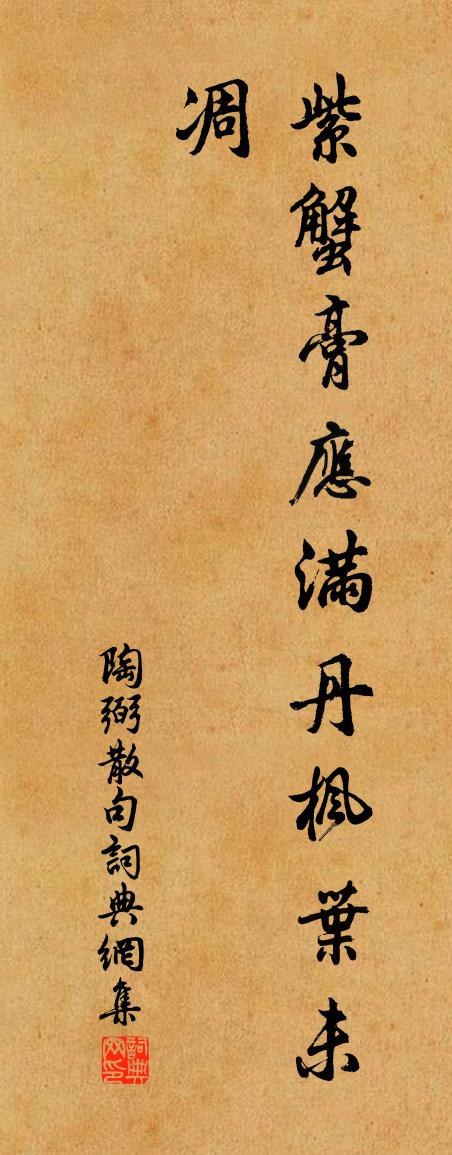 紫蟹膏應滿丹楓葉未
凋
陶弼散句詞典網集
詞典网印